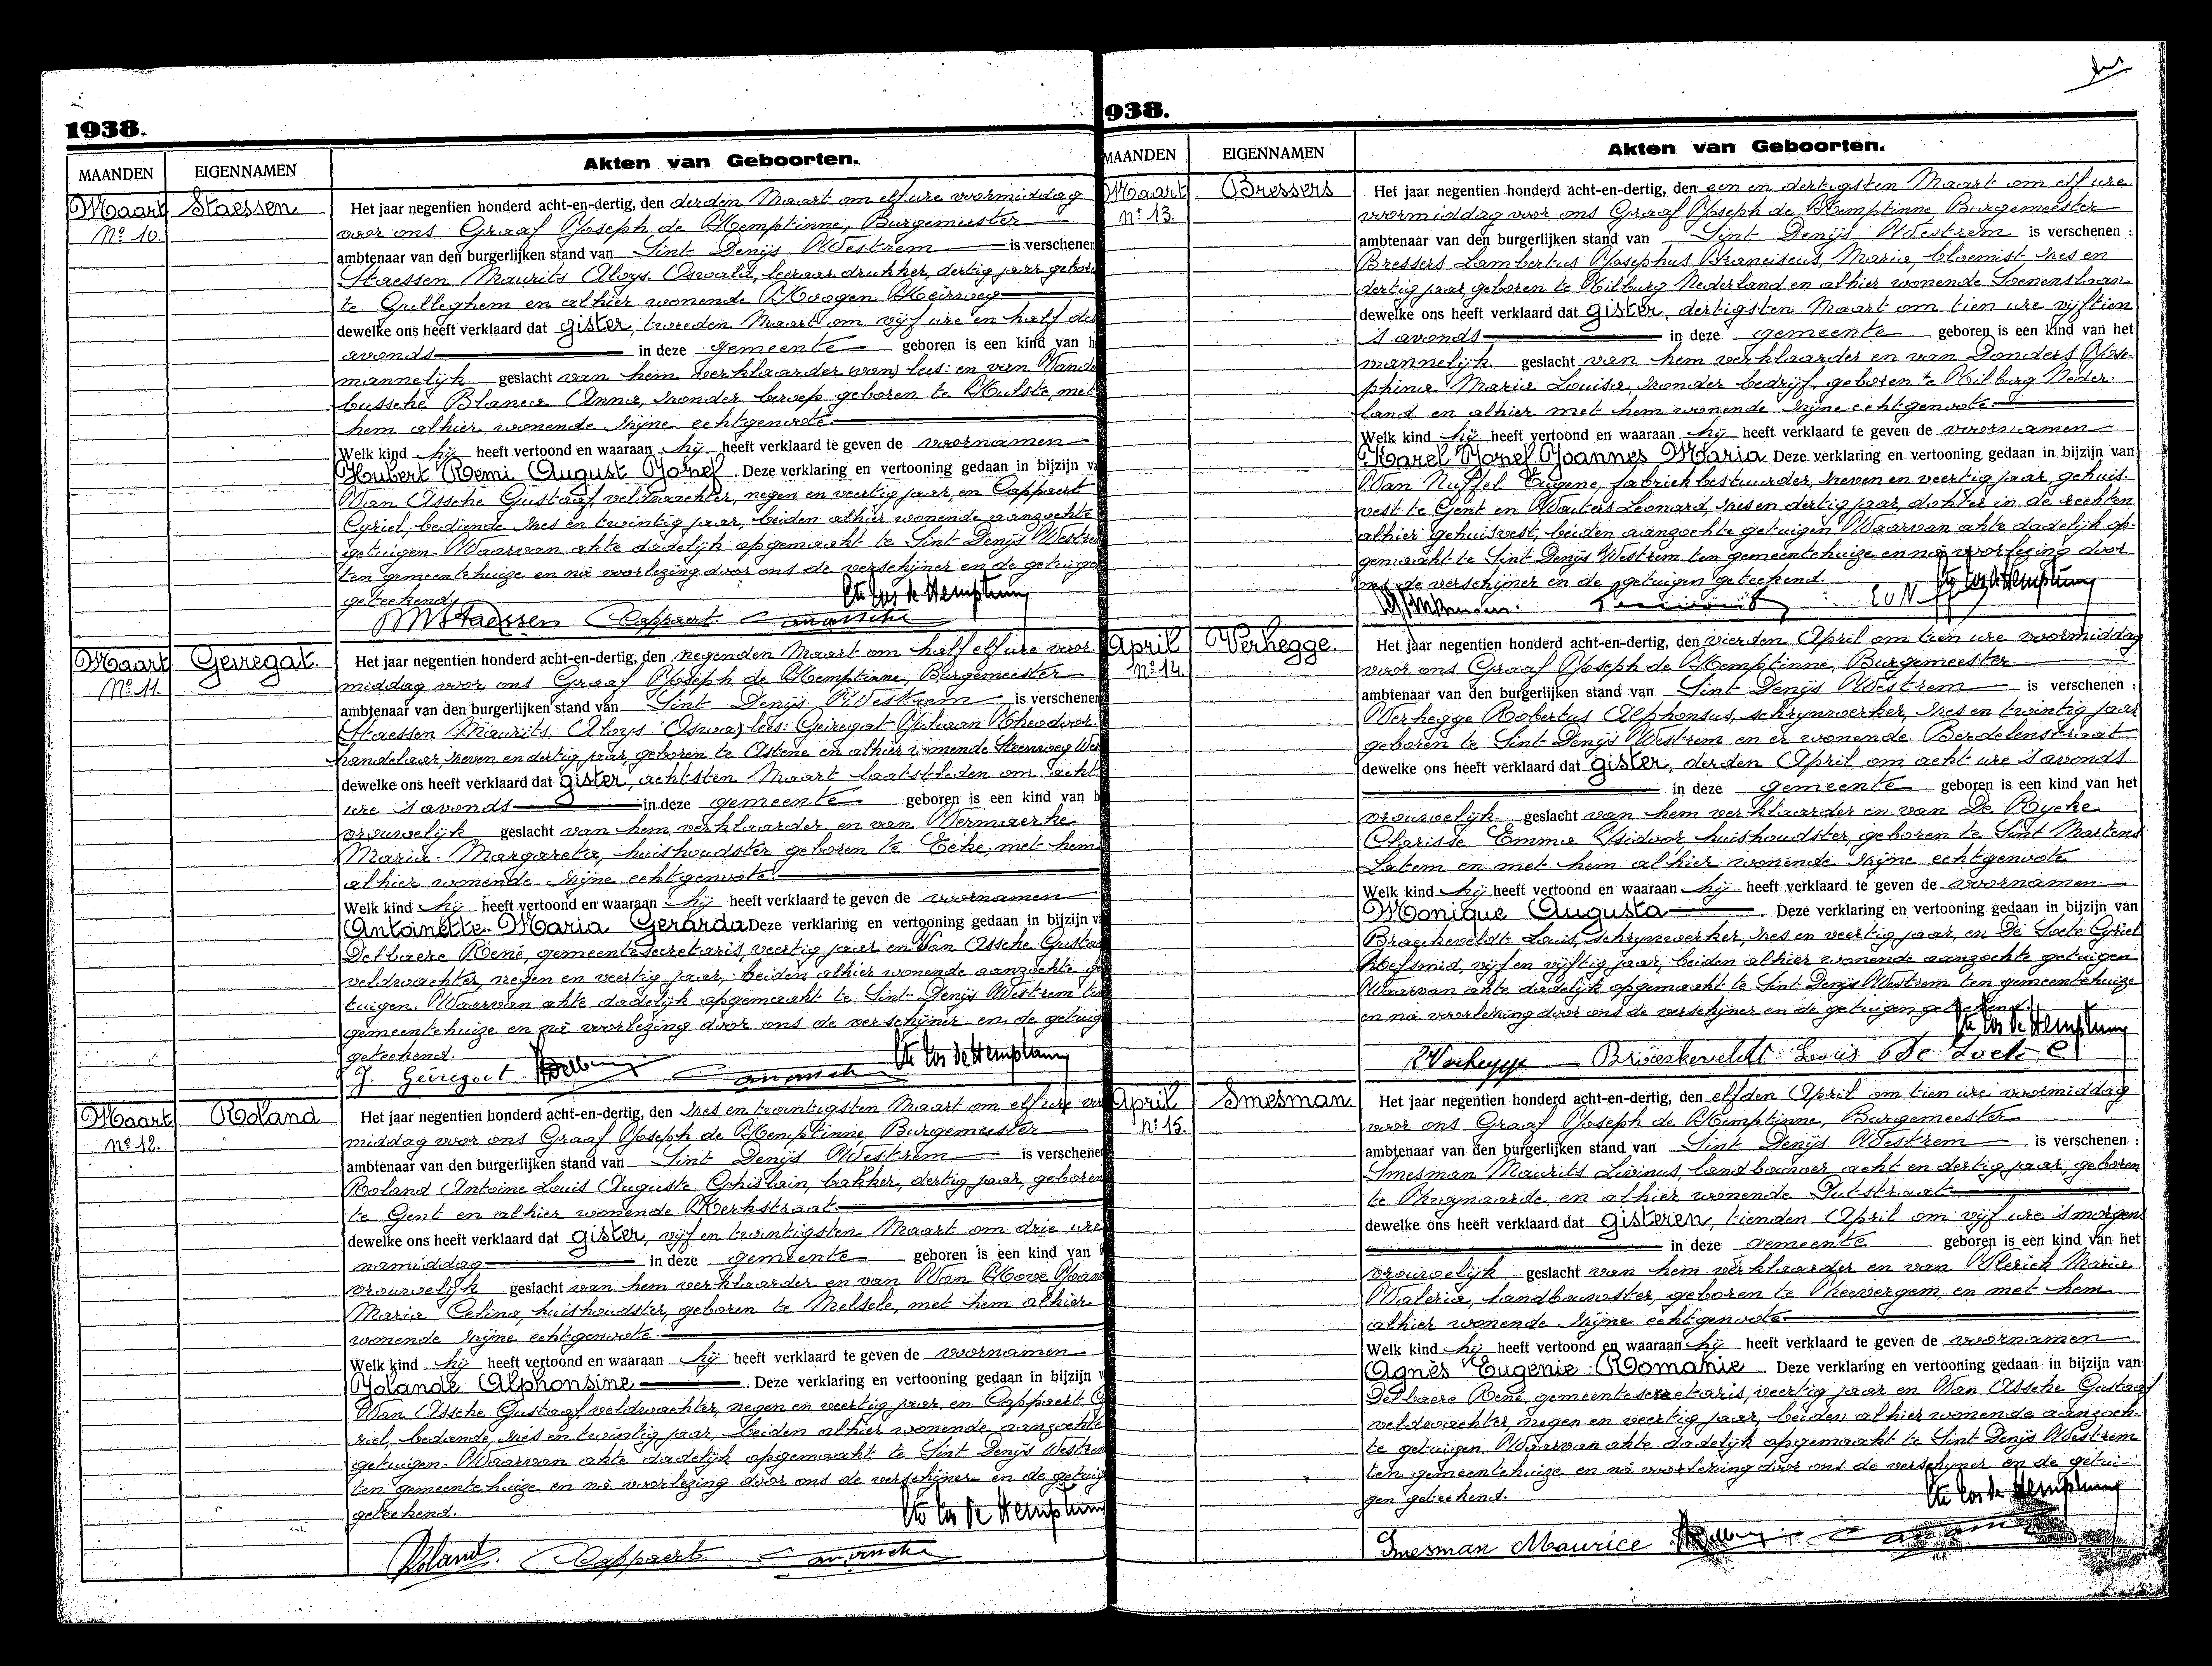 1938.
MAANDEN
EIGENNAMEN
Akten van Geboorten.
Maart
Nº 10.
Staessen
Het jaar negentien honderd acht-en-dertig, den derden Maart om elf ure voormiddag
voor ons Graaf Joseph de Hemptinne, Burgemeester
ambtenaar van den burgerlijken stand van Sint Denijs Westrem is verschenen
Staessen Maurits Aloys Oswald, leeraar drukker, dertig jaar gebore
te Gulleghem en alhier wonende Hoogen Heirweg
dewelke ons heeft verklaard dat gister, tweeden Maart om vijf ure en half des
avonds in deze gemeente geboren is een kind van h
mannelijk geslacht van hem verklaarder (van) lees: en van Vande
bussche Blanca Anna, zonder beroep geboren te Hulste, met
hem alhier wonende zijne echtgenoote.
Welk kind hij heeft vertoond en waaraan hij heeft verklaard te geven de voornamen
Hubert Remi August Jozef. Deze verklaring en vertooning gedaan in bijzijn va
Van Assche Gustaaf, veldwachter, negen en veertig jaar, en Cappaert
Cyriel, bediende zes en twintig jaar, beiden alhier wonende aanzochte
getuigen. Waarvan akte dadelijk opgemaakt te Sint Denijs Westre
ten gemeentehuize en na voorlezing door ons de verschijner en de getuige
geteekend.
Cte Jos de Hemptinne
M Staessen Cappaert Vanassche
Maart
Nº 11.
Gevregat.
Het jaar negentien honderd acht-en-dertig, den negenden Maart om half elf ure voor
middag voor ons Graaf Joseph de Hemptinne, Burgemeester
ambtenaar van den burgerlijken stand van Sint Denijs Westrem is verschenen
(Staessen Maurits Aloys Oswa) lees: Geiregat Juliaan Theodoor
handelaar, zeven en dertig jaar, geboren te Astene en alhier wonende Steenweg
dewelke ons heeft verklaard dat gister, achtsten Maart laatstleden om acht
ure 's avonds in deze gemeente geboren is een kind van h
vrouwelijk geslacht van hem verklaarder en van Vermaerke
Maria Margareta, huishoudster geboren te Eeke, met hem
alhier wonende zijne echtgenoote.
Welk kind hij heeft vertoond en waaraan hij heeft verklaard te geven de voornamen
Antoinette Maria Gerarda Deze verklaring en vertooning gedaan in bijzijn va
Delbaere René, gemeentesecretaris, veertig jaar en Van Assche Gusta
veldwachter, negen en veertig jaar, beiden alhier wonende aanzochte ge
tuigen. Waarvan akte dadelijk opgemaakt te Sint Denijs Westrem ten
gemeentehuize en na voorlezing door ons de verschijner en de getuig
geteekend.
Cte Jos de Hemptinne
J. Geiregat Delbaere Vanassche
Maart
Nº 12.
Roland
Het jaar negentien honderd acht-en-dertig, den zes en twintigsten Maart om elf ure vo
middag voor ons Graaf Joseph de Hemptinne Burgemeester
ambtenaar van den burgerlijken stand van Sint Denijs Westrem is verschene
Roland Antoine Louis Auguste Ghislain, bakker, dertig jaar, geboren
te Gent en alhier wonende Kerkstraat
dewelke ons heeft verklaard dat gister, vijf en twintigsten Maart om drie ure
namiddag in deze gemeente geboren is een kind van h
vrouwelijk geslacht van hem verklaarder en van Van Hove Joan
Maria Celina, huishoudster, geboren te Melsele, met hem alhier
wonende zijne echtgenoote.
Welk kind hij heeft vertoond en waaraan hij heeft verklaard te geven de voornamen
Yolande Alphonsine. Deze verklaring en vertooning gedaan in bijzijn v
Van Assche Gustaaf, veldwachter, negen en veertig jaar, en Cappaert Cy
riel, bediende, zes en twintig jaar, beiden alhier wonende aanzochte
getuigen. Waarvan akte dadelijk opgemaakt te Sint Denijs Westrem
ten gemeentehuize en na voorlezing door ons de verschijner en de getuig
geteekend.
Cte Jos de Hemptinne
Roland. Cappaert Vanassche
938.
MAANDEN
EIGENNAMEN
Akten van Geboorten.
Maart
Nº 13.
Bressers
Het jaar negentien honderd acht-en-dertig, den een en dertigsten Maart om elf ure
voormiddag voor ons Graaf Joseph de Hemptinne Burgemeester
ambtenaar van den burgerlijken stand van Sint Denijs Westrem is verschenen :
Bressers Lambertus Josephus Franciscus, Maria, bloemist, zes en
dertig jaar, geboren te Tilburg Nederland en alhier wonende Loenenslaan
dewelke ons heeft verklaard dat gister, dertigsten Maart om tien ure vijftien
's avonds in deze gemeente geboren is een kind van het
mannelijk geslacht van hem verklaarder en van Donders Jose-
phina Maria Louisa, zonder bedrijf, geboren te Tilburg Neder-
land en alhier met hem wonende zijne echtgenoote.
Welk kind hij heeft vertoond en waaraan hij heeft verklaard te geven de voornamen
Karel Jozef Joannes Maria Deze verklaring en vertooning gedaan in bijzijn van
Van Nuffel Eugene, fabriekbestuurder, zeven en veertig jaar, gehuis-
vest te Gent en Wauters Leonard, zes en dertig jaar, dokter in de rechten
alhier gehuisvest, beiden aanzochte getuigen. Waarvan akte dadelijk op-
gemaakt te Sint Denijs Westrem ten gemeentehuize en na voorlezing door
ons de verschijner en de getuigen geteekend.
Cte Jos de Hemptinne
April
Nº 14.
Verhegge.
Het jaar negentien honderd acht-en-dertig, den vierden April om tien ure voormiddag
voor ons Graaf Joseph de Hemptinne, Burgemeester
ambtenaar van den burgerlijken stand van Sint Denijs Westrem is verschenen :
Verhegge Robertus Alphonsus, schrijnwerker, zes en twintig jaar
geboren te Sint Denijs Westrem en er wonende Berdelenstraat
dewelke ons heeft verklaard dat gister, derden April om acht ure 's avonds
in deze gemeente geboren is een kind van het
vrouwelijk geslacht van hem verklaarder en van De Rycke
Clarisse Emma Isidoor, huishoudster, geboren te Sint Martens
Latem en met hem alhier wonende zijne echtgenoote
Welk kind hij heeft vertoond en waaraan hij heeft verklaard te geven de voornamen
Monique Augusta. Deze verklaring en vertooning gedaan in bijzijn van
Braeckeveldt Louis, schrijnwerker, zes en veertig jaar, en De Loete Cyriel
hoefsmid, vijf en vijftig jaar, beiden alhier wonende aanzochte getuigen
Waarvan akte dadelijk opgemaakt te Sint Denijs Westrem ten gemeentehuize
en na voorlezing door ons de verschijner en de getuigen geteekend.
Cte Jos de Hemptinne
R Verhegge Braeckeveldt Louis De Loete C
April
Nº 15.
Smesman
Het jaar negentien honderd acht-en-dertig, den elfden April om tien ure voormiddag
voor ons Graaf Joseph de Hemptinne, Burgemeester
ambtenaar van den burgerlijken stand van Sint Denijs Westrem is verschenen :
Smesman Maurits Livinus, landbouwer acht en dertig jaar, geboren
te Zwynaarde, en alhier wonende Putstraat
dewelke ons heeft verklaard dat gisteren, tienden April om vijf ure 's morgens
in deze gemeente geboren is een kind van het
vrouwelijk geslacht van hem verklaarder en van Vlerick Maria
Valeria, landbouwster, geboren te Zhevergem, en met hem
alhier wonende zijne echtgenoote.
Welk kind hij heeft vertoond en waaraan hij heeft verklaard te geven de voornamen
Agnès Eugenie Romanie. Deze verklaring en vertooning gedaan in bijzijn van
Delbaere René, gemeentesecretaris, veertig jaar en Van Assche Gustaaf
veldwachter negen en veertig jaar, beiden alhier wonende aanzoch-
te getuigen. Waarvan akte dadelijk opgemaakt te Sint Denijs Westrem
ten gemeentehuize en na voorlezing door ons de verschijner en de getui-
gen geteekend.
Cte Jos de Hemptinne
Smesman Maurice Delbaere Vanassche